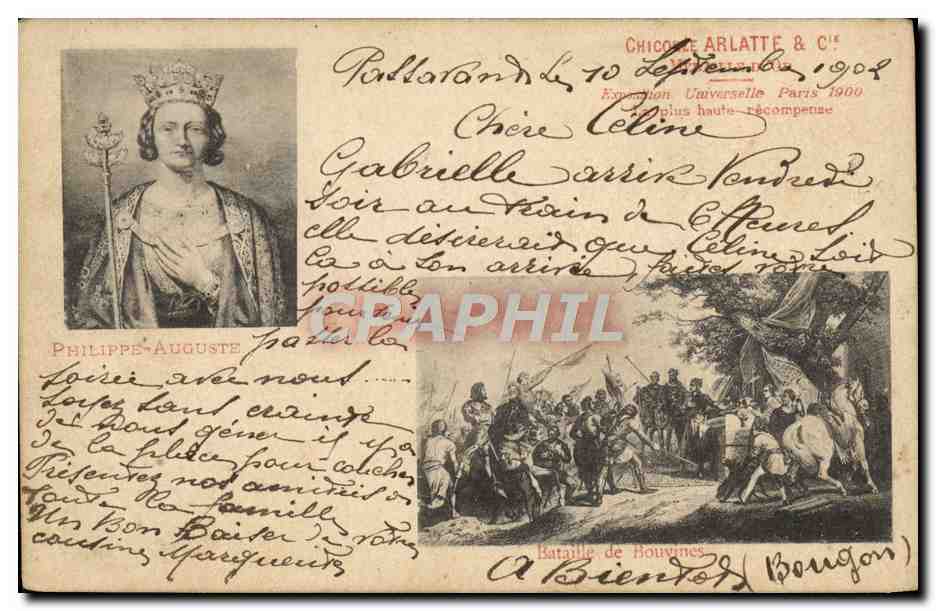 CHICORÉE ARLATTE & CIE
Exposition Universelle Paris 1900
La plus haute récompense
Passavant le 10 Septembre 1902
Chère Céline
Gabrielle arrive Vendredi
soir au train de 6 Heures
elle désirerait que Céline soit
la a son arrivée, faites votre
possible
pour venir
passer la
PHILIPPE-AUGUSTE
soirée avec nous .....
soyez sans crainte
de nous gêner il y a
de la place pour coucher
Présentez nos amitiés a
toute la famille
Un Bon Baiser de votre
cousine Marguerite
CPARAPHIL
Bataille de Bouvines
A Bientot (Bougon)